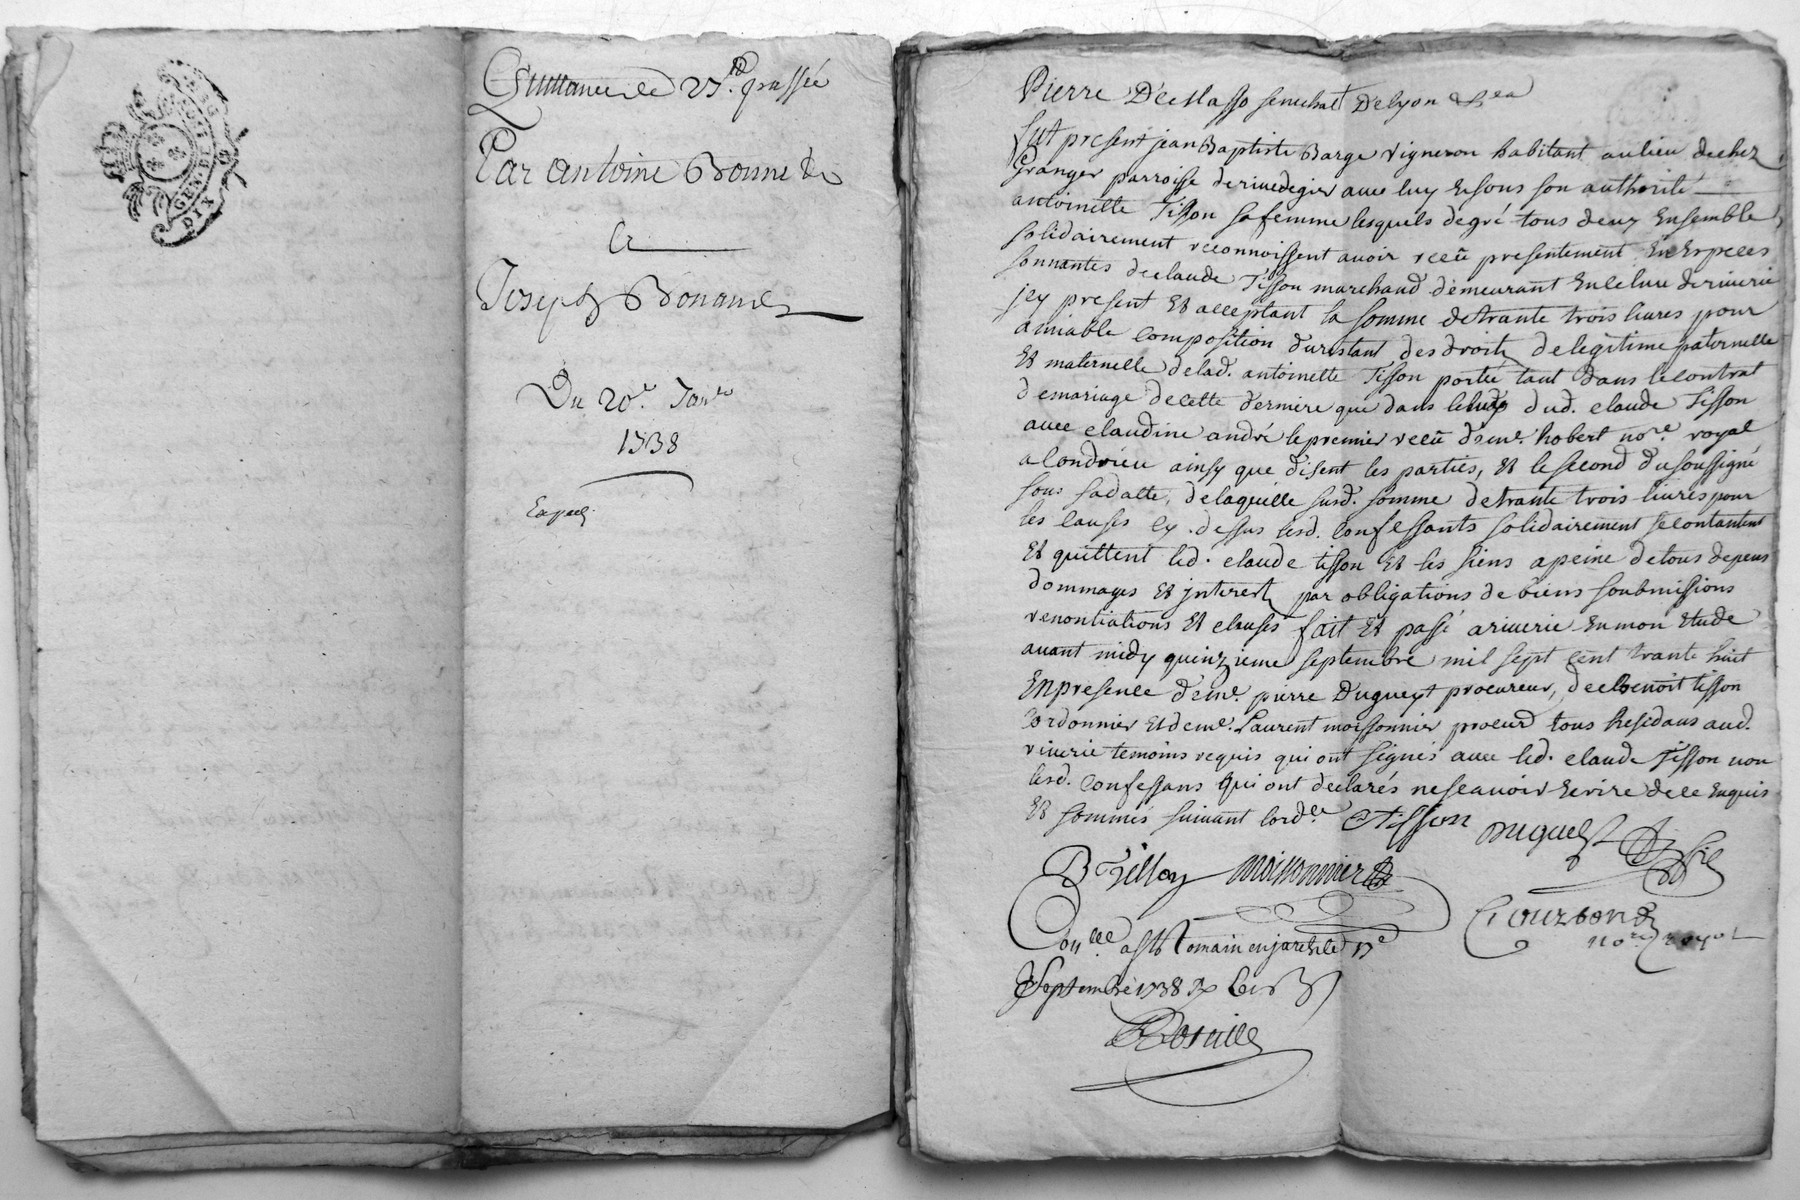 GEN DE LION
DIX
Quittance de 25.tt passée
Par Antoine Bonne
a
Joseph Bonand
Du 20e. Janer
1738
Expedi.
Pierre De Masso senechal De lyon &ca
fut present jean Baptiste Barge vigneron habitant au lieu de chez
Granger parroisse de rivedegier avec luy et sous son authorité
antoinette Tisson sa femme lesquels de gré tous deux Ensemble
solidairement reconnoissent avoir reçu presentement En Especes
sonnantes de claude Tisson marchand demeurant en ce lieu de riverie
jcy present et acceptant la somme de trante trois livres pour
amiable composition du restant des droits de legitime paternelle
et maternelle de lad. antoinette Tisson portée tant dans le contrat
de mariage de cette derniere que dans celuy dud. claude Tisson
avec claudine andré le premier reçu de me. hobert nore. royal
a Condrieu ainsy que disent les parties, et le second du soussigné
sous sa datte, de laquelle susd. somme de trante trois livres pour
les causes cy dessus lesd. confessants solidairement se contantent
et quittent led. claude tisson et les siens a peine de tous depens
dommages et jnterest par obligations de biens soubmissions
renontiations et clauses fait et passé a riverie en mon etude
avant midy quinzieme septembre mil sept cent trante huit
En presence de me. pierre Dugueyt procureur, de benoit tisson
cordonnier et de me. Laurent moissonnier procurr tous Residans aud.
riverie temoins requis qui ont signés avec led. claude Tisson non
lesd. confessans qui ont declarés ne scavoir ecrire de ce enquis
et sommés suivant lordce CTisson Duguey
B Tisson moissonnier
Gourbon
nore royal
Conlle a St Romain en jarest le 17e
Septembre 1738